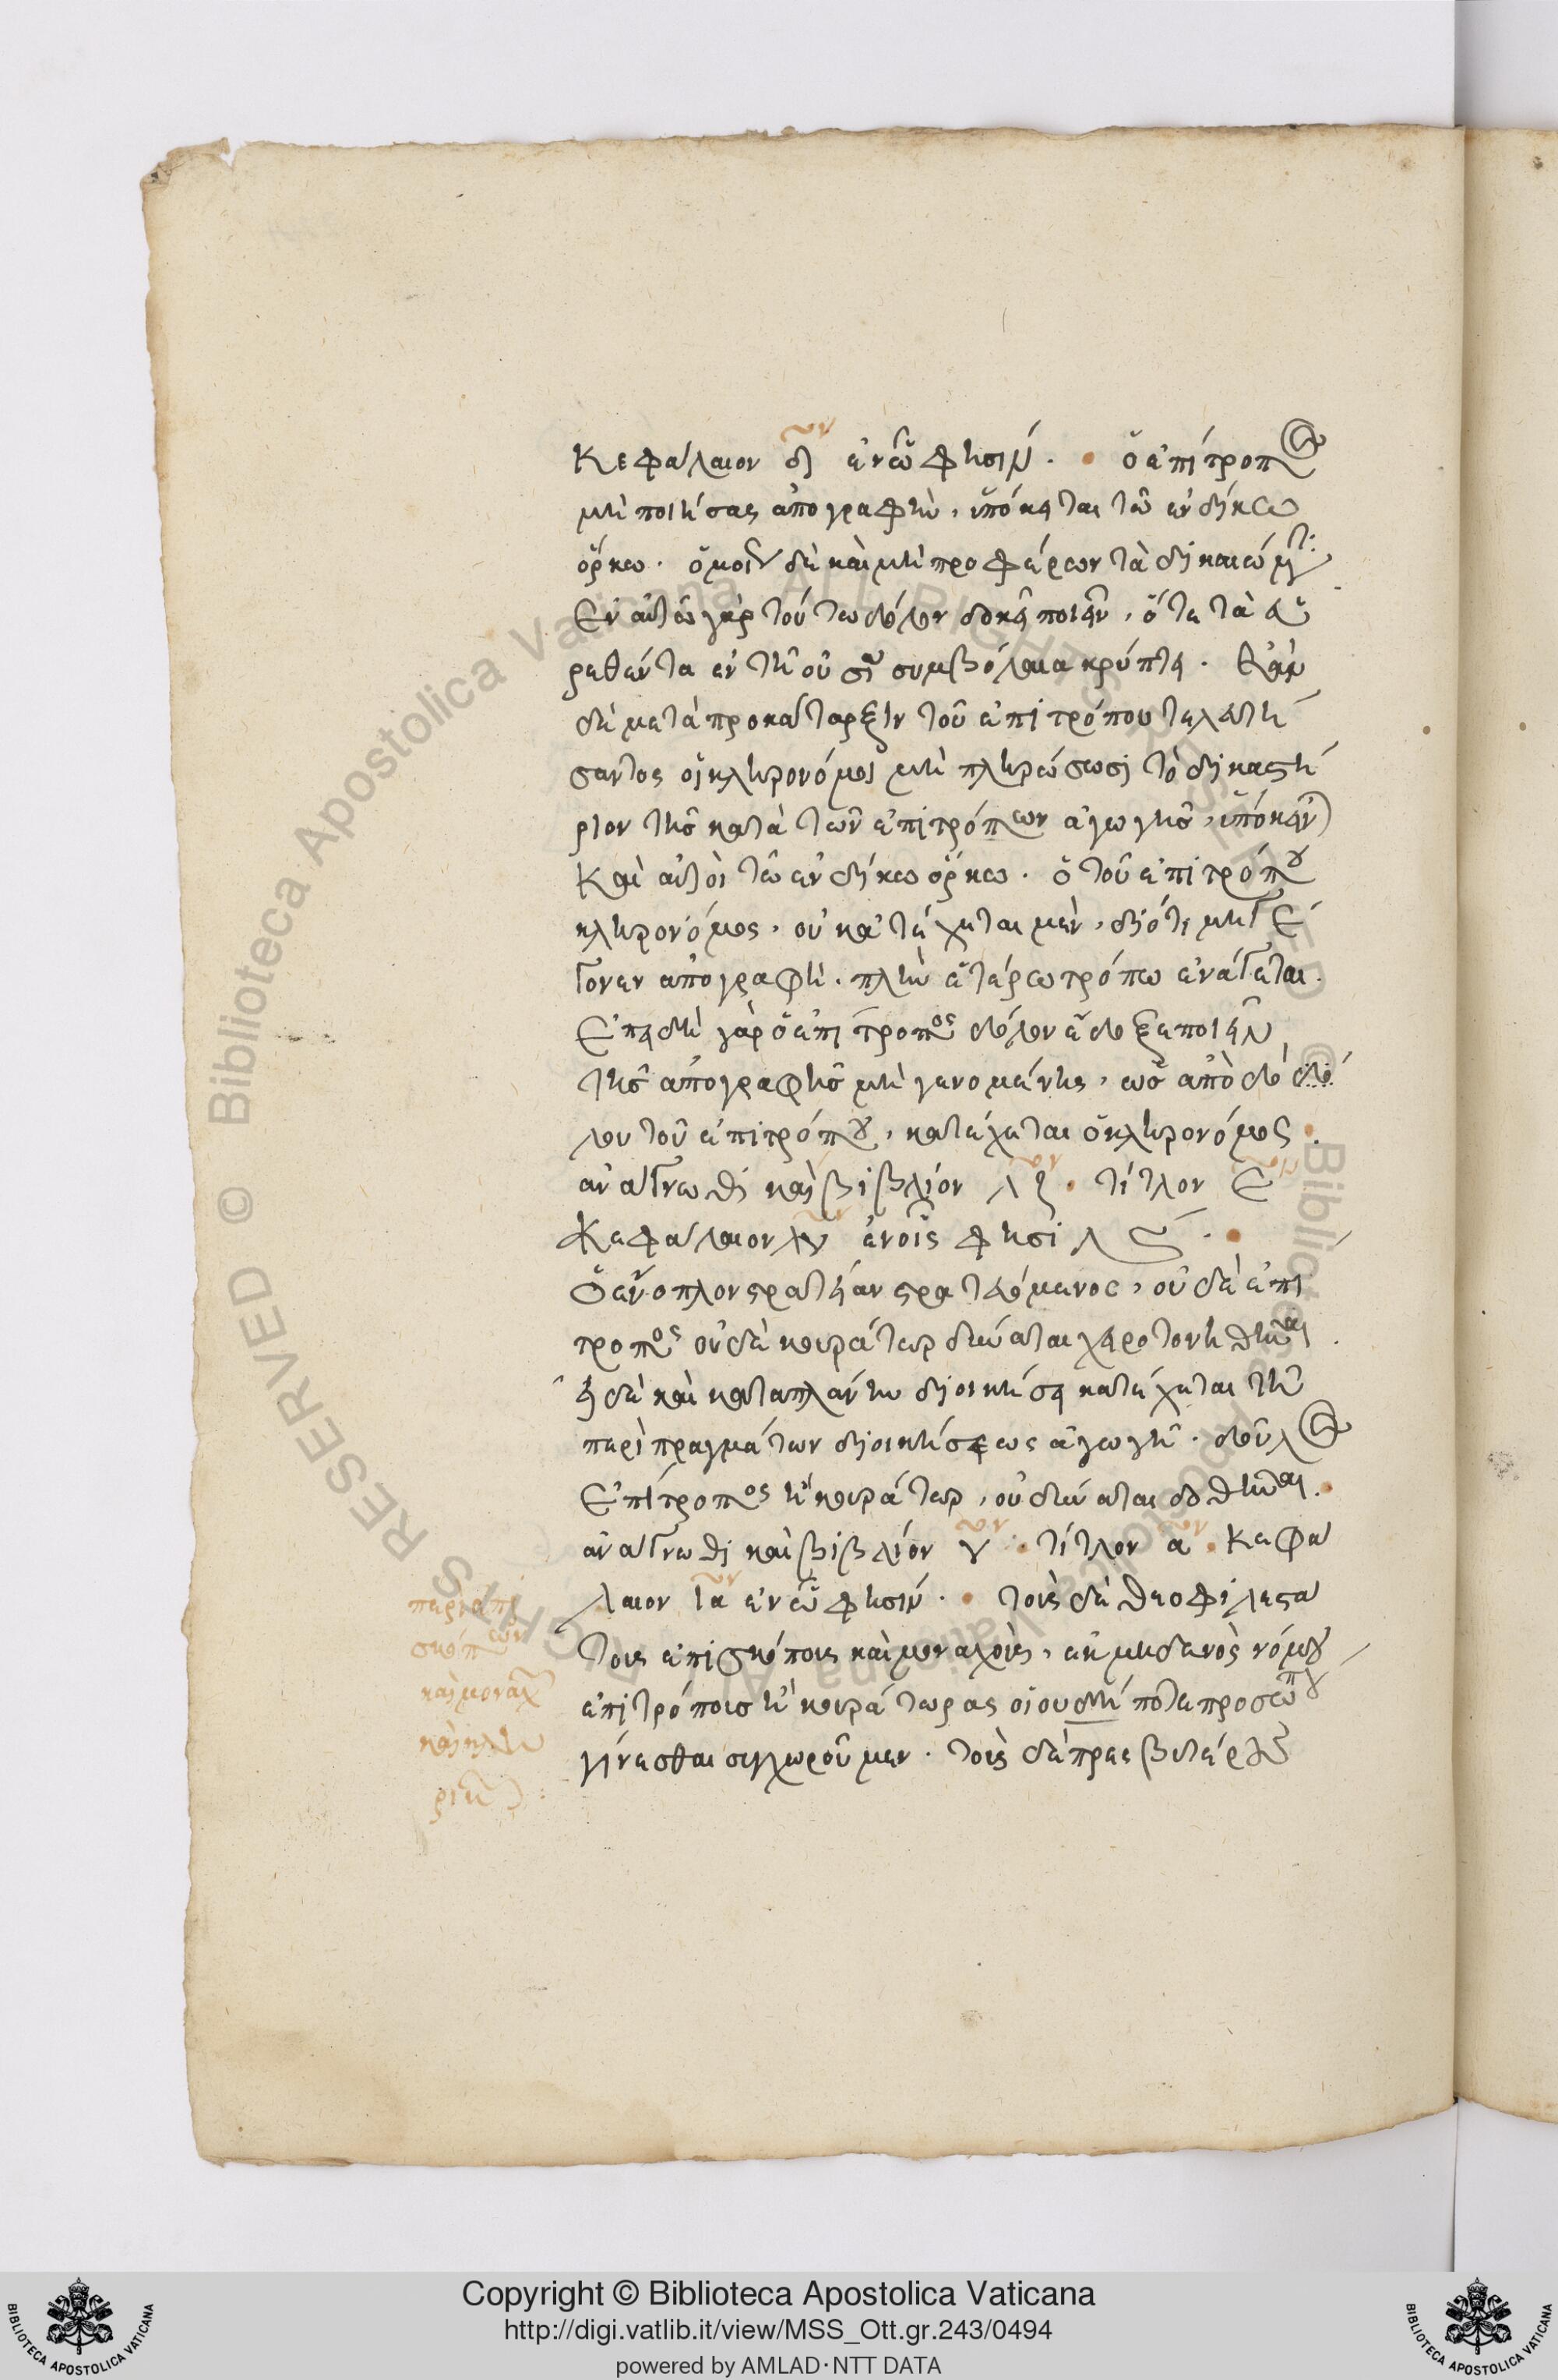 κεφάλαιον δ τον ἐν ᾧ φησίν. ὁ ἐπίτροπος
μὴ ποιήσας ἀπογραφὴν, ὑπόκειται τῶ ἐνδίκω
ὅρκω. ὁμοίως δὲ καὶ μὴ προφέρων τὰ δικαιώματα.
Ἐν αὐτῶ γὰρ τούτω δόλον δοκεῖ ποιεῖν, ὅτε τὰ εὑ
ρεθέντα ἐν τῆ οὐσία συμβόλαια κρύπτει. Ἐὰν
δὲ μετὰ προκάταρξιν τοῦ ἐπιτρόπου τελευτή
σαντος οἱ κληρονόμοι μὴ πληρώσωσι τὸ δικαστή
ριον τῆς κατὰ τῶν ἐπιτρόπων ἀγωγῆς, ὑπόκεινται
καὶ αὐτοὶ τῶ ἐνδίκω ὅρκω. ὁ τοῦ ἐπιτρόπου
κληρονόμος, οὐ κατέχεται μὲν, διότι μὴ γέ
γονεν ἀπογραφὴ. πλὴν ἑτέρω τρόπω ἐνάγεται.
Ἐπειδὴ γὰρ ὁ ἐπίτροπος δόλον ἔδοξε ποιεῖν
τῆς ἀπογραφῆς μὴ γενομένης, ὡς ἀπὸ δό δό
λου τοῦ ἐπιτρόπου, κατέχεται ὁ κληρονόμος.
ἀνάγνωθι καὶ βιβλίον λζ τον. τίτλον ε τον
κεφάλαιον ἐν οἷς φησί
Ὁ ἔνοπλον στρατείαν στρατευόμενος, οὐδὲ ἐπί
τροπος οὐδὲ κουράτωρ δύναται χειροτονηθῆναι.
εἰ δὲ καὶ κατὰ πλάνην διοικήσει κατέχεται τῆ
περὶ πραγμάτων διοικήσεως ἀγωγῆ. δοῦλος
Ἐπίτροπος ἢ κουράτωρ, οὐ δύναται δοθῆναι.
ἀνάγνωθι καὶ βιβλίον γ τον. τίτλον α τον. κεφά
λαιον ια τον ἐν ᾧ φησίν. τοῖς δὲ θεοφιλεστά
τοις ἐπισκόποις καὶ μοναχοῖς, ἐκ μηδενὸς νόμου
ἐπιτρόποις ἢ κουράτωρας οἱουδήποτε προσώπου
γίνεσθαι συγχωροῦμεν. τοῖς δὲ πρεσβυτέροις
περὶ ἐπι
σκόπων
καὶ μοναχῶν
καὶ κλη
ρικῶν:
Copyright © Biblioteca Apostolica Vaticana
http://digi.vatlib.it/view/MSS_Ott.gr.243/0494
powered by AMLAD·NTT DATA